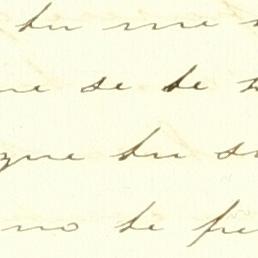 tu me
ue se te
que tu su
no te fue